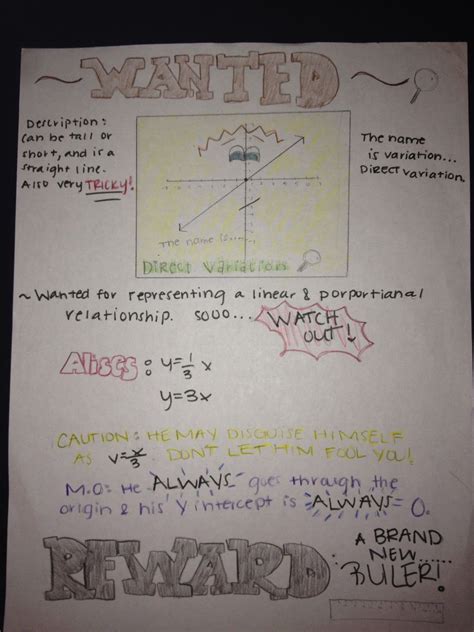 ~ WANTED ~
Description:
can be tall or
short, and is a
straight line.
Also very TRICKY!
The name
is variation...
Direct variation
The name is.....
Direct Variation
~ Wanted for representing a linear & porportianal
relationship. sooo...
WATCH
OUT!
Alises: y=1/3 x
y=3x
CAUTION: HE MAY DISGUISE HIMSELF
AS y=x/3. DONT LET HIM FOOL YOU!
M.O: He ALWAYS goes through the
origin & his y intercept is ALWAYS = 0.
REWARD
A BRAND
NEW.....
RULER!